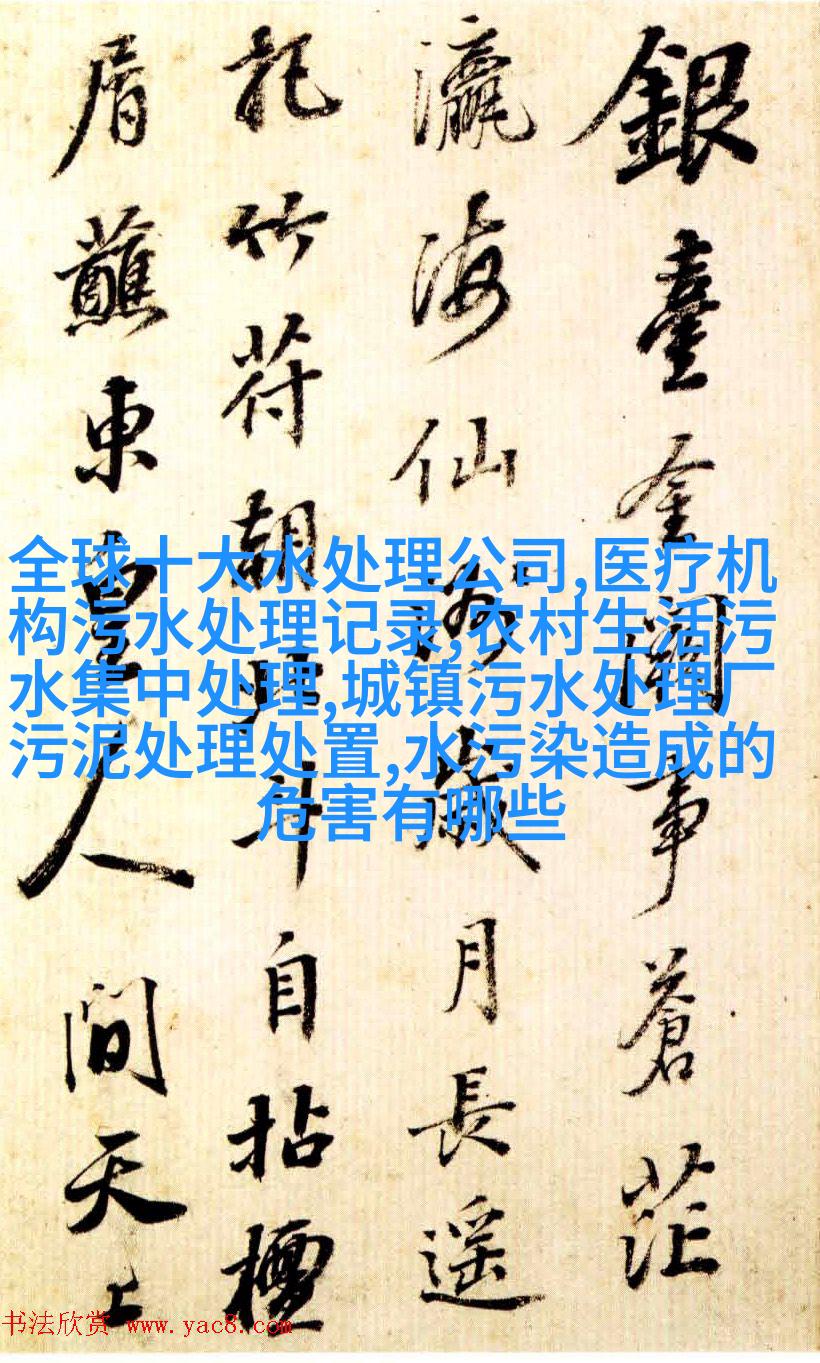 銀臺金闕事蒼茫
瀛海仙歲月長遥
記竹符朝北斗自拈檀
屑蘸東皇人間天上
全球十大水处理公司,医疗机
构污水处理记录,农村生活污
水集中处理,城镇污水处理厂
污泥处理处置,水污染造成的
危害有哪些
书法欣赏 www.yac8.com